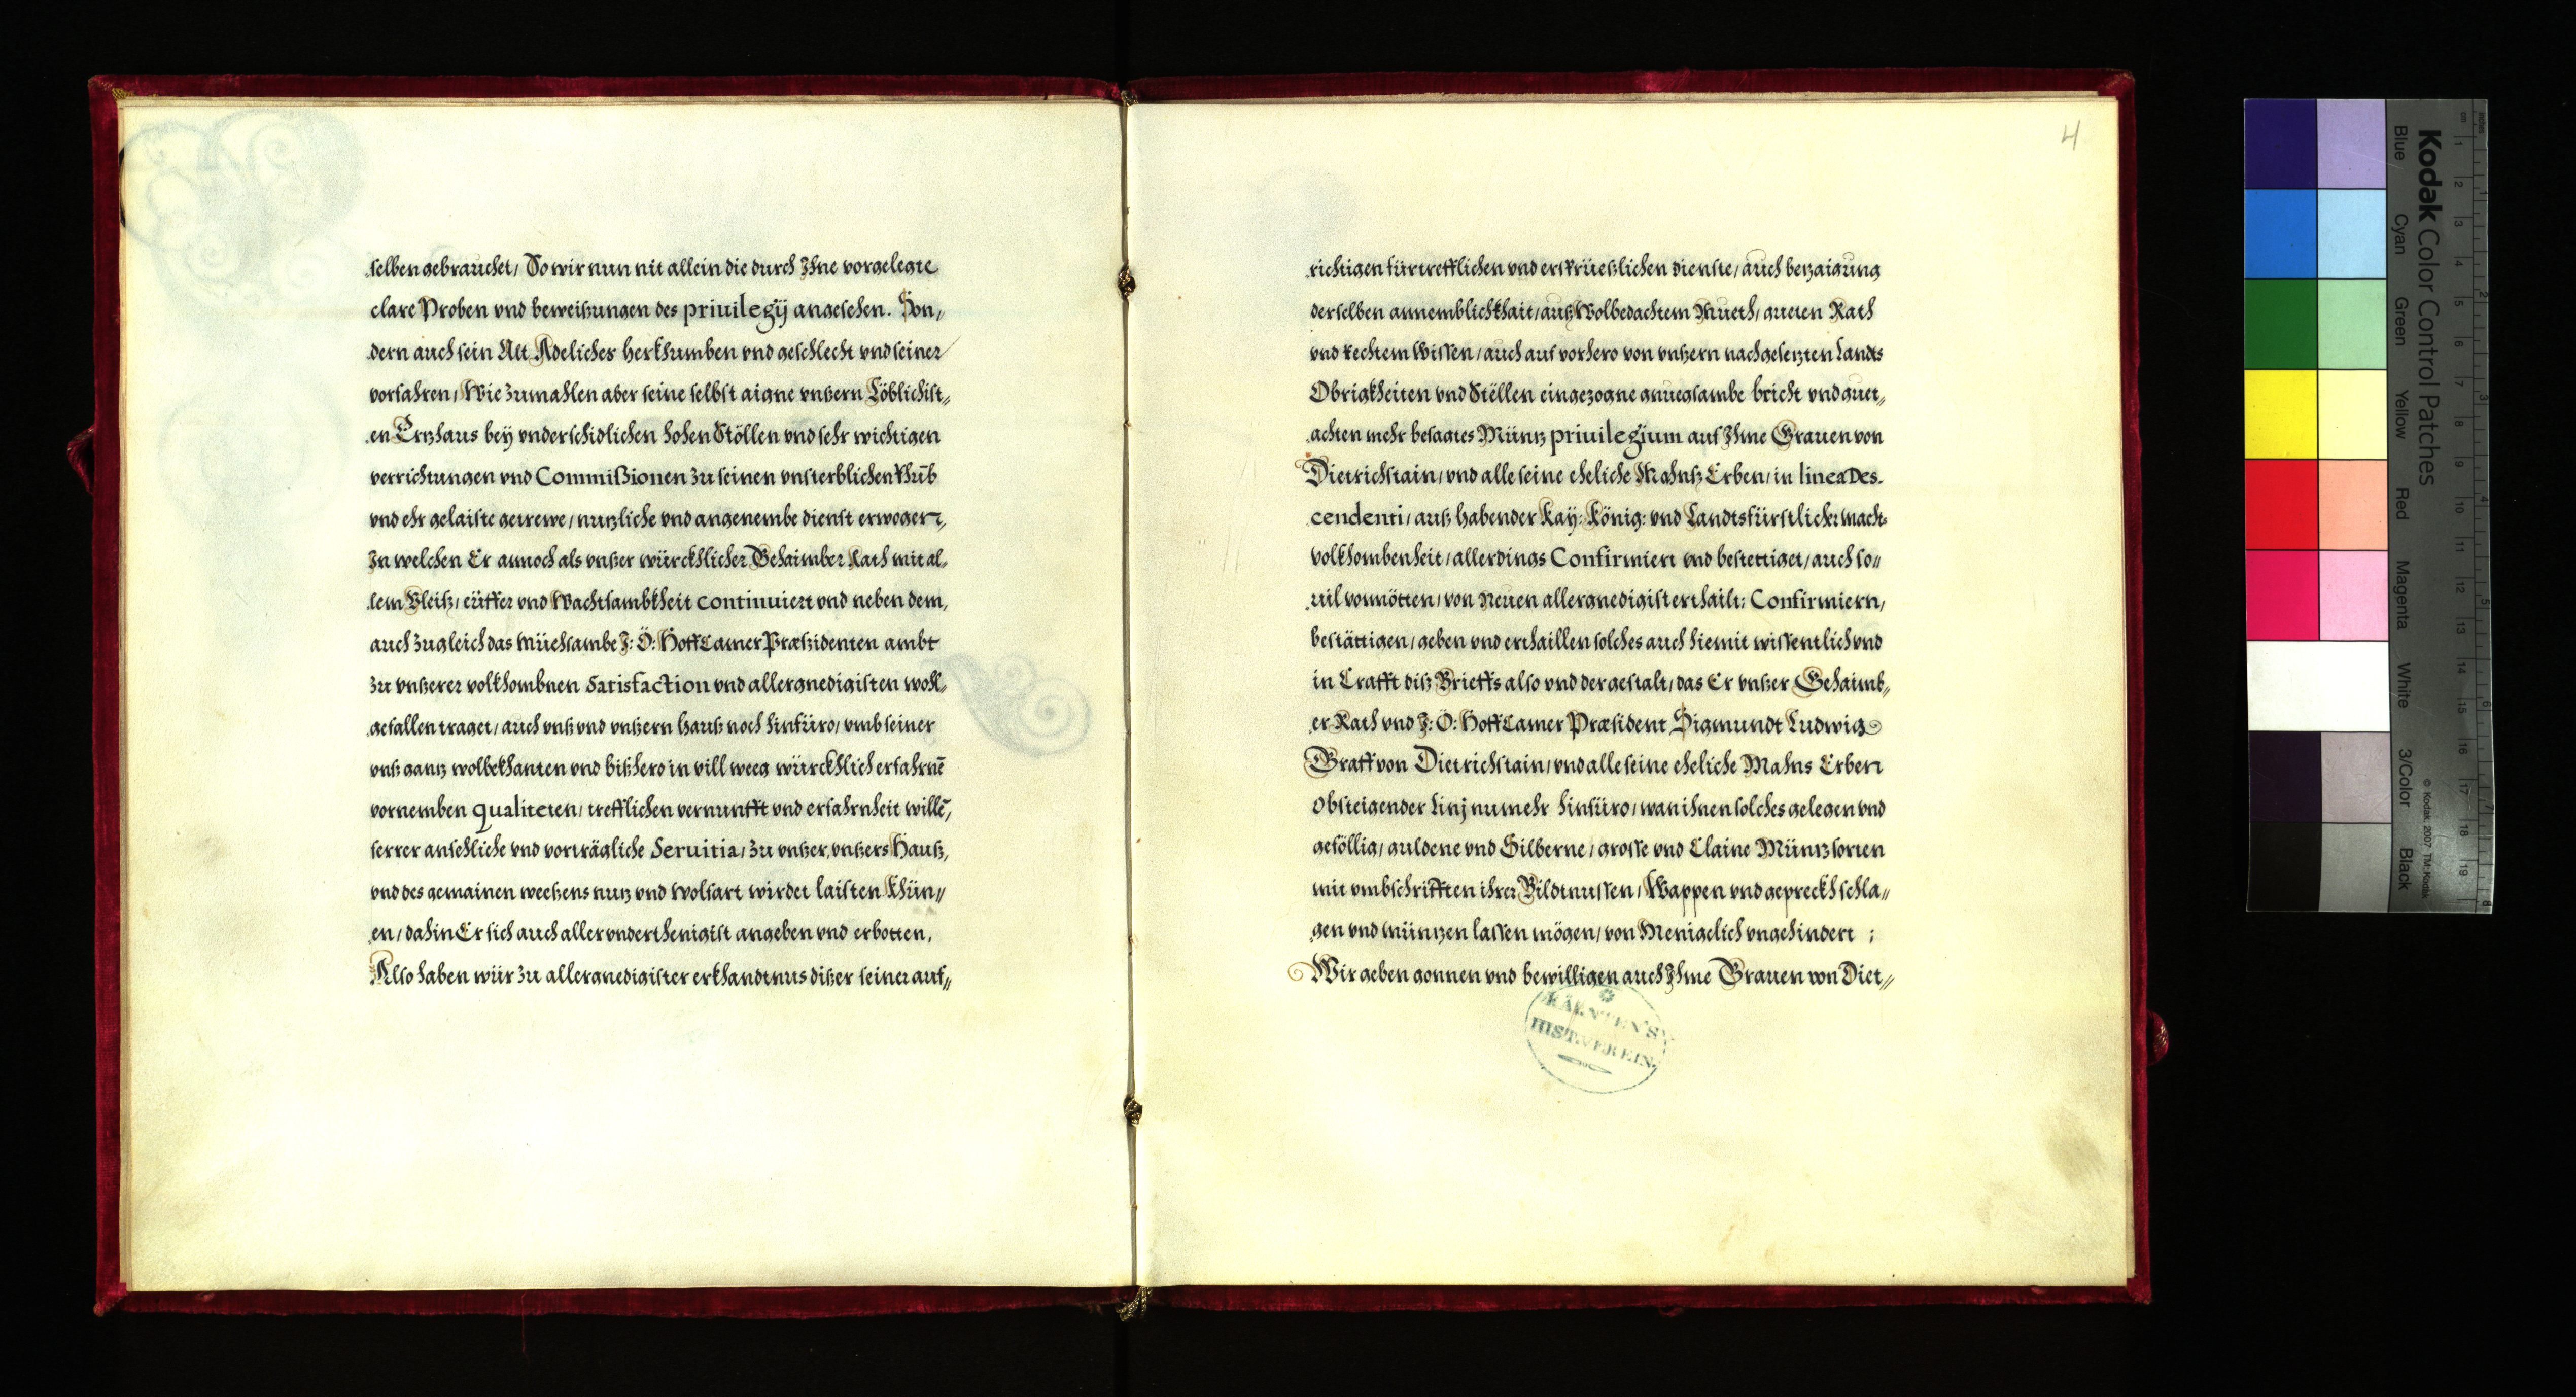 selben gebrauchet, So wir nun nit allein die durch Ihne vorgelegte
clare Proben vnd beweißungen des priuilegÿ angesehen. Son,,
dern auch sein Alt Adeliches herkhumben vnd geschlecht vnd seiner
vorfahren, Wie zumahlen aber seine selbst aigne vnßern Löblichist,,
en Ertzhaus bey vnderschidlichen hohen Stöllen vnd sehr wichtigen
verrichtungen vnd Commißionen zu seinen vnsterblichen Rhūb
vnd ehr gelaiste getrewe, nutzliche vnd angenembe dienst erwogen,
In welchen Er annoch als vnßer würckhlicher Gehaimber Rath mit al,,
lem Vleiß, eüffer vnd Wachtsambkheit continuiert vnd neben dem,
auch zugleich das müehsambe I: Ö: HoffCamer Præßidenten ambt
zu vnßerer volkhombnen Satisfaction vnd allergnedigisten woll,,
gefallen traget, auch vnß vnd vnßern hauß noch hinfüro, vmb seiner
vnß gantz wolbekhanten vnd bißhero in vill weeg würckhlich erfahrnē
vornemben qualiteten, trefflichen vernunfft vnd erfahrnheit willē,
ferrer ansehliche vnd vorträgliche Seruitia, zu vnßer, vnßers Hauß,
vnd des gemainen weeßens nutz vnd wolfart wirdet laisten Khün,,
en, dahin Er sich auch allervnderthenigist angeben vnd erbotten,
Also haben wür zu allergnedigister erkhandtnus dißer seiner auf,,
4
richtigen fürtrefflichen vnd ersprüeßlichen dienste, auch bezaigung
derselben annemblichkhait, auß Wolbedachtem Mueth, gueten Rath
vnd rechtem Wissen, auch auf vorhero von vnßern nachgesetzten Landts
Obrigkheiten vnd Stëllen eingezogne gnuegsambe bricht vnd guet,,
achten mehr besagtes Müntz priuilegium auf Ihme Grauen von
Dietrichstain, vnd alle seine eheliche Mahnß Erben, in linea Des-
cendenti, auß habender Kaÿ: König: vnd Landtsfürstlicher macht-
volkhombenheit, allerdings Confirmiert vnd bestettiget, auch so,,
uil vonnötten, von Neuen allergnedigist erthailt: Confirmiern,
bestättigen, geben vnd erthaillen solches auch hiemit wissentlich vnd
in Crafft diß Brieffs also vnd dergestalt, das Er vnßer Gehaimb,,
er Rath vnd I: Ö: HoffCamer Præsident Sigmundt Ludwig
Graff von Dietrichstain, vnd alle seine eheliche Mahns Erben
obsteigender Linj numehr hinfüro, wan ihnen solches gelegen vnd
geföllig, guldene vnd Silberne, grosse vnd Claine Müntzsorten
mit vmbschrifften ihrer Bildtnussen, Wappen vnd gepreckh schla,,
gen vnd müntzen lassen mögen, von Menigelich vngehindert ;
Wir geben gonnen vnd bewilligen auch Ihme Grauen von Diet,,
KÄRNTEN'S
HIST. VEREIN.
Kodak Color Control Patches
© Kodak, 2007 TM: Kodak
Blue
Cyan
Green
Yellow
Red
Magenta
White
3/Color
Black